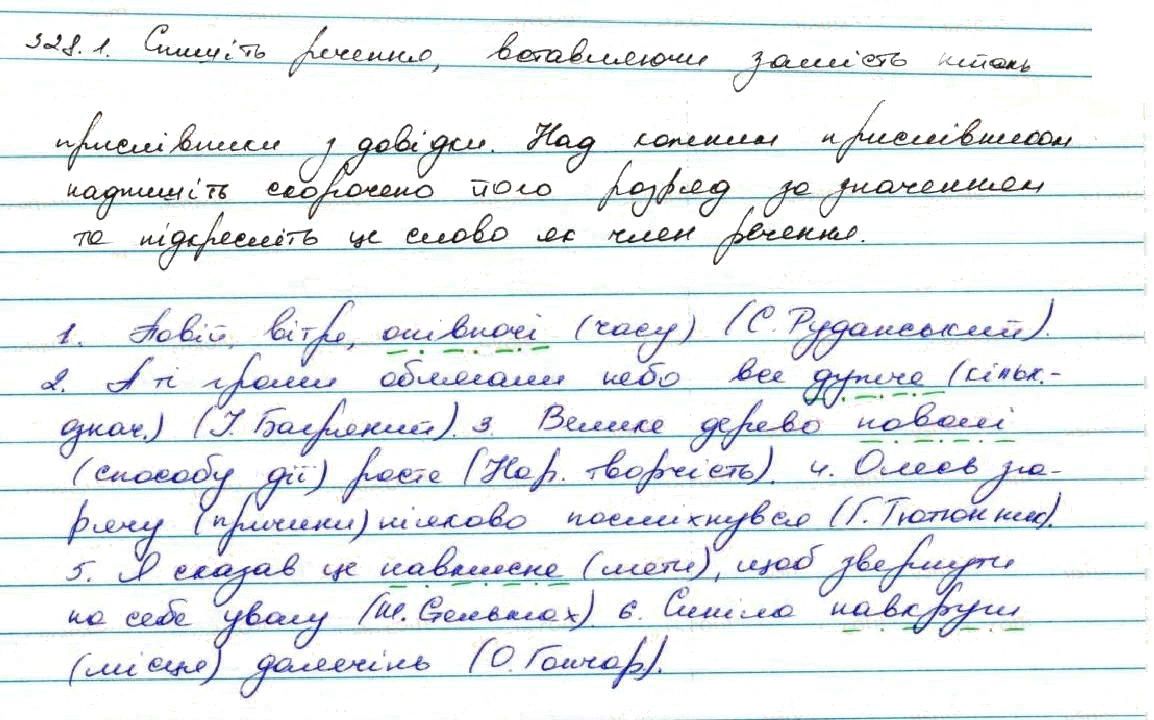 328.1. Спишіть речення, вставляючи замість питань
прислівники з довідки. Над кожним прислівником
надпишіть скорочено його розряд за значенням
та підкресліть це слово як член речення.
1. Повій, вітре, опівночі (часу) (С. Руданський).
2. А ті громи обіймали небо все дужче (кільк.-
означ.) (І. Багряний). 3. Велике дерево поволі
(способу дії) росте (Нар. творчість). 4. Олесь зга-
рячу (причини) ніяково посміхнувся (Г. Тютюнник).
5. Я сказав це навмисне (мети), щоб звернути
на себе увагу (М. Стельмах) 6. Синіла навкруги
(місця) далечінь (О. Гончар).